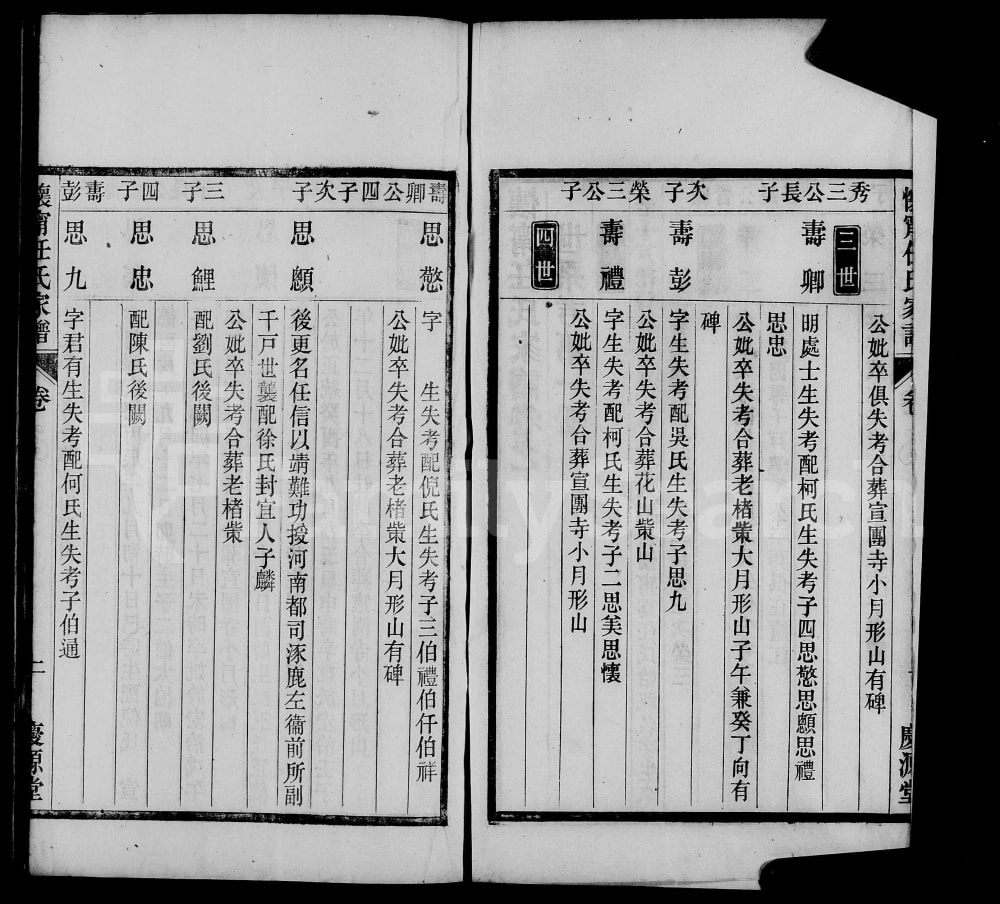 公妣卒俱失考合葬宣團寺小月形山有碑
三世
秀三公長子
壽卿
明處士生失考配柯氏生失考子四思慜思顯思禮
思忠
公妣卒失考合葬老楮葉大月形山子午兼癸丁向有
碑
次子
壽彭
字生失考配吳氏生失考子思九
公妣卒失考合葬花山葉山
榮三公子
壽禮
字生失考配柯氏生失考子二思美思懷
公妣卒失考合葬宣團寺小月形山
四世
壽卿公四子
思慜
字 生失考配倪氏生失考子三伯禮伯仟伯祥
公妣卒失考合葬老楮葉大月形山有碑
次子
思顯
後更名任信以靖難功授河南都司涿鹿左衞前所副
千戸世襲配徐氏封宜人子麟
公妣卒失考合葬老楮葉
三子
思鯉
配劉氏後闕
四子
思忠
配陳氏後闕
壽彭
思九
字君有生失考配何氏生失考子伯通
懷甯任氏家譜
卷
二
慶源堂